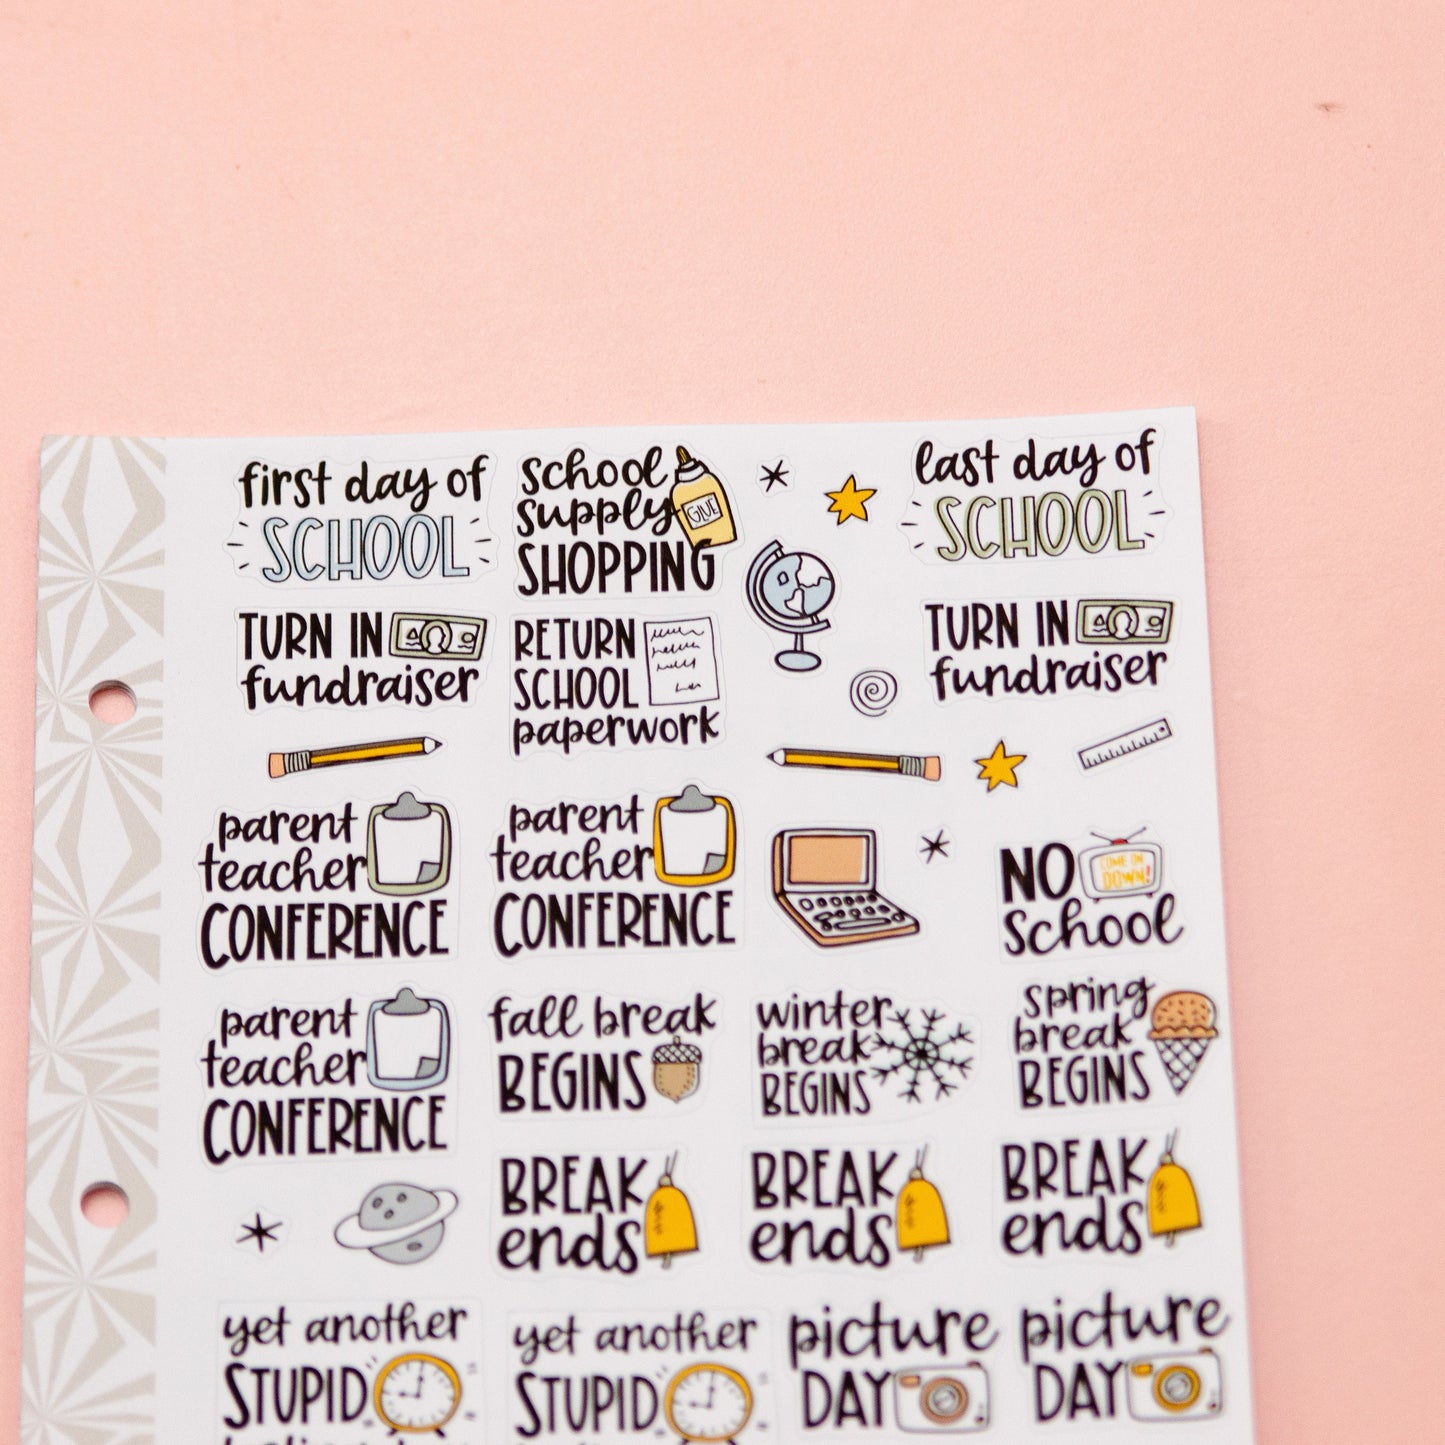 first day of
SCHOOL
school
supply
SHOPPING
GLUE
last day of
SCHOOL
TURN IN
fundraiser
RETURN
SCHOOL
paperwork
TURN IN
fundraiser
parent
teacher
CONFERENCE
parent
teacher
CONFERENCE
NO
COME ON
DOWN!
school
parent
teacher
CONFERENCE
fall break
BEGINS
winter
break
BEGINS
spring
break
BEGINS
BREAK
ends
BREAK
ends
BREAK
ends
yet another
STUPID
yet another
STUPID
picture
DAY
picture
DAY